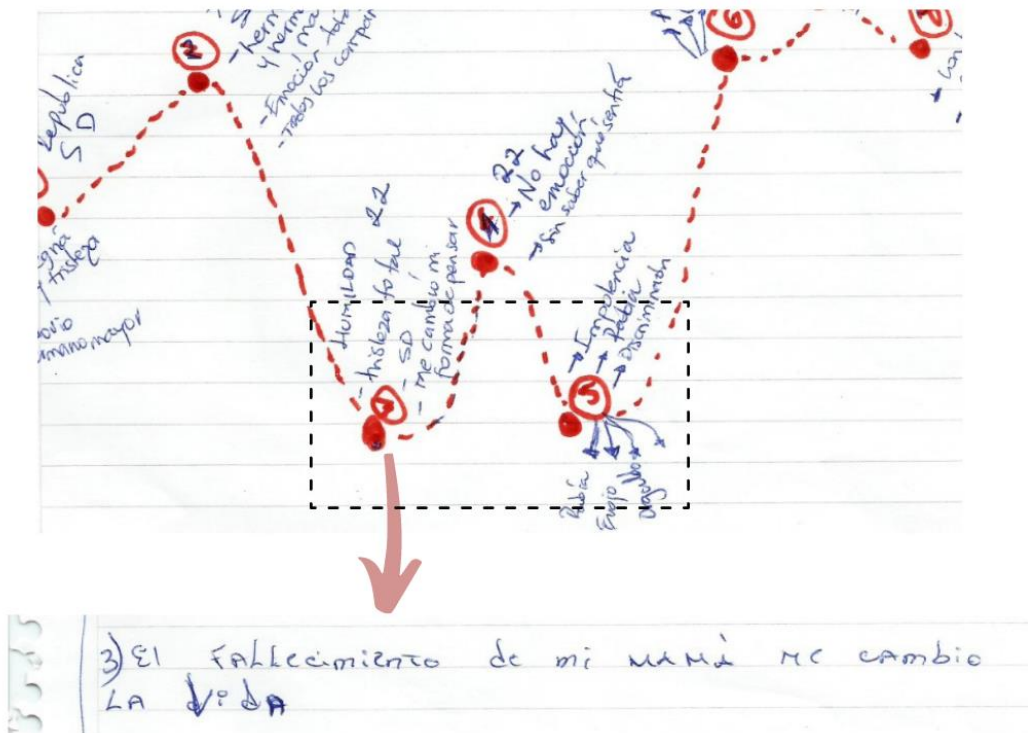 2
- herm
y herm
- Emoción tota
- todos los compar
Republica
SD
y tristeza
mano mayor
HUMILDAD
- tristeza total 22
- SD
- me cambio mi
forma de pensar
4
22
→ No hay
emoción
→ Sin saber qué sentía
5
→ Impotencia
→ Rabia
→ Discriminación
Rabia
Enojo
Orgullo
6
3) El FALLecimiento de mi MAMÁ Me cambio
LA VidA